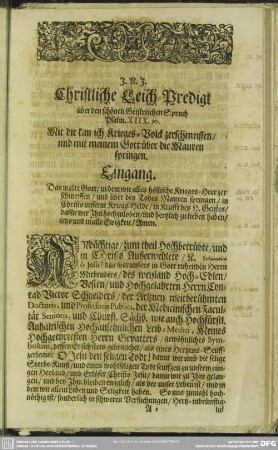 J. N. J.
Christliche Leich Predigt
über den schönen Geistreichen Spruch
Psalm. XIIX. 30.
Mit dir kan ich Krieges-Volck zerschmeissen /
und mit meinem Gott über die Mauren
springen.
Eingang.
Das walte Gott / in dem wir alles höllische Krieges-Heer zer
schmeissen / und über des Todes Mauren springen / in
Christo unserm Kriegs-Helde / in Krafft des H. Geistes /
dafür wir Ihn hochzuloben / und hertzlich zu lieben haben /
jetzo und in alle Ewigkeit / Amen.
ANdächtige / zum theil Hochbetrübte / und
in Christo Außerwehlete /
O Jesu! das war unsers in Gott ruhenden Herrn
Mitbruders / des weyland Hoch-Edlen /
Vesten / und Hochgelahrten Herrn Con-
rad Victor Schneiders / der Artzney weitberühmten
Doctoris, und Professoris Publici, der Medicinischen Facul-
tät Senioris, und Churf. Sächs. wie auch Hochfürstl.
Anhaltischen Hochansehnlichen Leib-Medici, Meines
Hochgeehrtesten Herrn Gevatters / gewöhnliches Sym-
bolum,
gerlens: O Jesu den seligen Todt! damit wir umb die selige
Sterbe-Kunst / und einen wohlseligen Todt seufftzen zu unserm eini-
gen Heyland / und Erlöser Christo Jesu / damit wir zu Ihm gelan-
gen / und bey Ihm bleiben ewiglich / als der unser Leben ist / und in
dem wir allein Leben und Seligkeit haben. So uns zumahl hoch-
nöthig ist / sonderlich in schweren
A 2